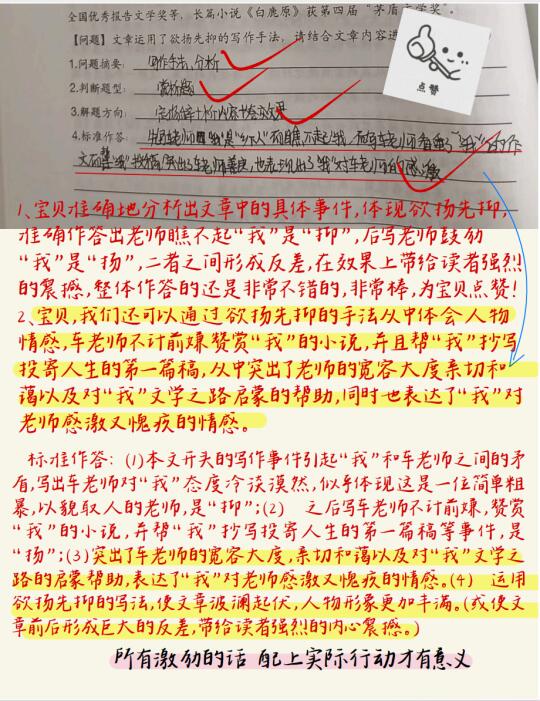 全国优秀报告文学奖等，长篇小说《白鹿原》获第四届“茅盾文学奖”。
【问题】文章运用了欲扬先抑的写作手法，请结合文章内容进
1.问题摘要：写作手法，分析
2.判断题型：赏析题
3.解题方向：
点赞
4.标准作答：
1、宝贝准确地分析出文章中的具体事件，体现欲扬先抑，
准确作答出老师瞧不起“我”是“抑”，后写老师鼓励
“我”是“扬”，二者之间形成反差，在效果上带给读者强烈
的震撼，整体作答的还是非常不错的，非常棒，为宝贝点赞！
2、宝贝，我们还可以通过欲扬先抑的手法从中体会人物
情感，车老师不计前嫌赞赏“我”的小说，并且帮“我”抄写
投寄人生的第一篇稿，从中突出了老师的宽容大度亲切和
蔼以及对“我”文学之路启蒙的帮助，同时也表达了“我”对
老师感激又愧疚的情感。
标准作答：(1)本文开头的写作事件引起“我”和车老师之间的矛
盾，写出车老师对“我”态度冷谈漠然，似乎体现这是一位简单粗
暴，以貌取人的老师，是“抑”；(2) 之后写车老师不计前嫌，赞赏
“我”的小说，并帮“我”抄写投寄人生的第一篇稿等事件，是
“扬”；(3)突出了车老师的宽容大度，亲切和蔼以及对“我”文学之
路的启蒙帮助，表达了“我”对老师感激又愧疚的情感。(4) 运用
欲扬先抑的写法，使文章波澜起伏，人物形象更加丰满。(或使文
章前后形成巨大的反差，带给读者强烈的内心震撼。)
所有激励的话 配上实际行动才有意义